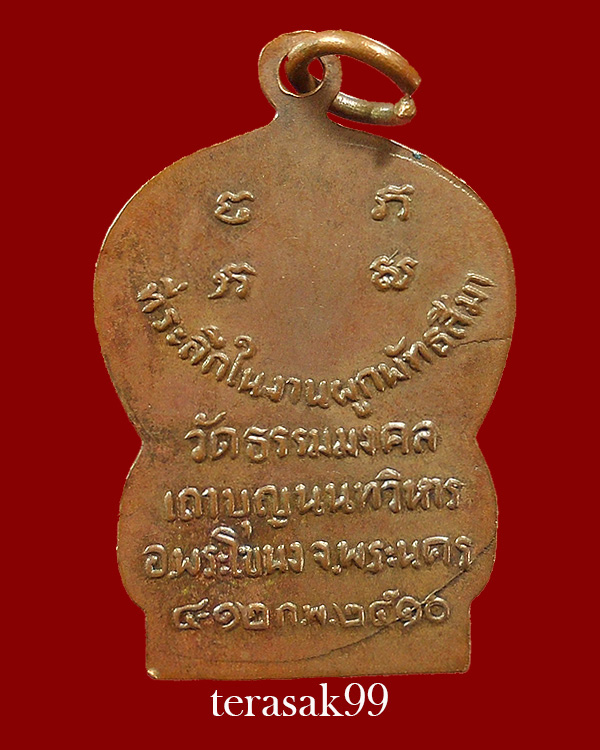 ที่ระลึกในงานผูกพัทธสีมา
วัดธรรมมงคล
เถาบุญนนทวิหาร
อ.พระโขนง จ.พระนคร
๔-๑๒ ก.พ. ๒๕๑๐
terasak99